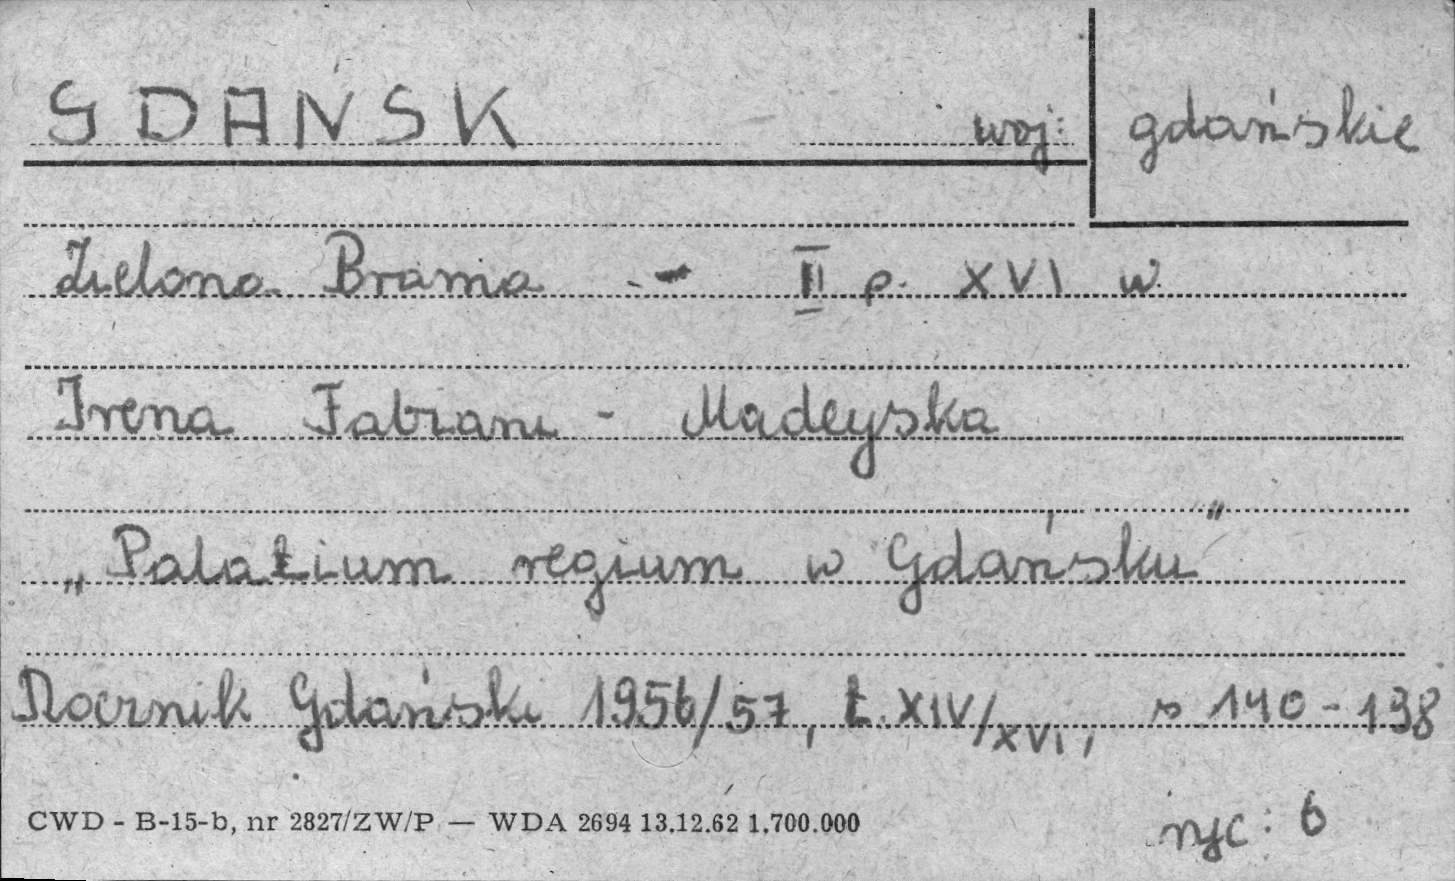 GDAŃSK woj: gdańskie
Zielona Brama - II p. XVI w.
Irena Fabiani - Madeyska
„Palatium regium w Gdańsku"
Rocznik Gdański 1956/57, t. XIV/XVI, s 140-198
ryc: 6
CWD - B-15-b, nr 2827/ZW/P — WDA 2694 13.12.62 1.700.000